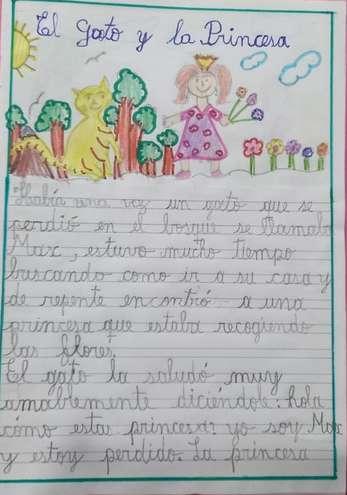 El Gato y la Princesa
Había una vez un gato que se
perdió en el bosque se llamaba
Max, estuvo mucho tiempo
buscando como ir a su casa y
de repente encontró a una
princesa que estaba recogiendo
las flores.
El gato la saludó muy
amablemente diciéndole: hola
cómo estas princesa? yo soy Max
y estoy perdido. La princesa